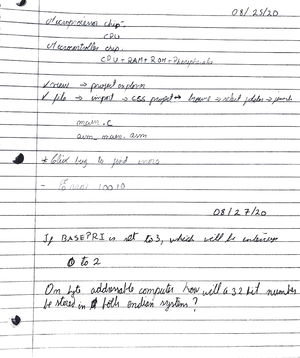 08/25/20
Microprocessor chip-
CPU
Microcontroller chip.
CPU + RAM + ROM + Peripherals
✓ view → project explorer
✓ file → import → CCS project → browse → select folder →
main.c
asm_main.asm
* Click bug to find
-
08/27/20
If BASEPRI is set to 3, which will be
0 to 2
On byte addressable computer how will a 32 bit number
be stored in both endian systems?